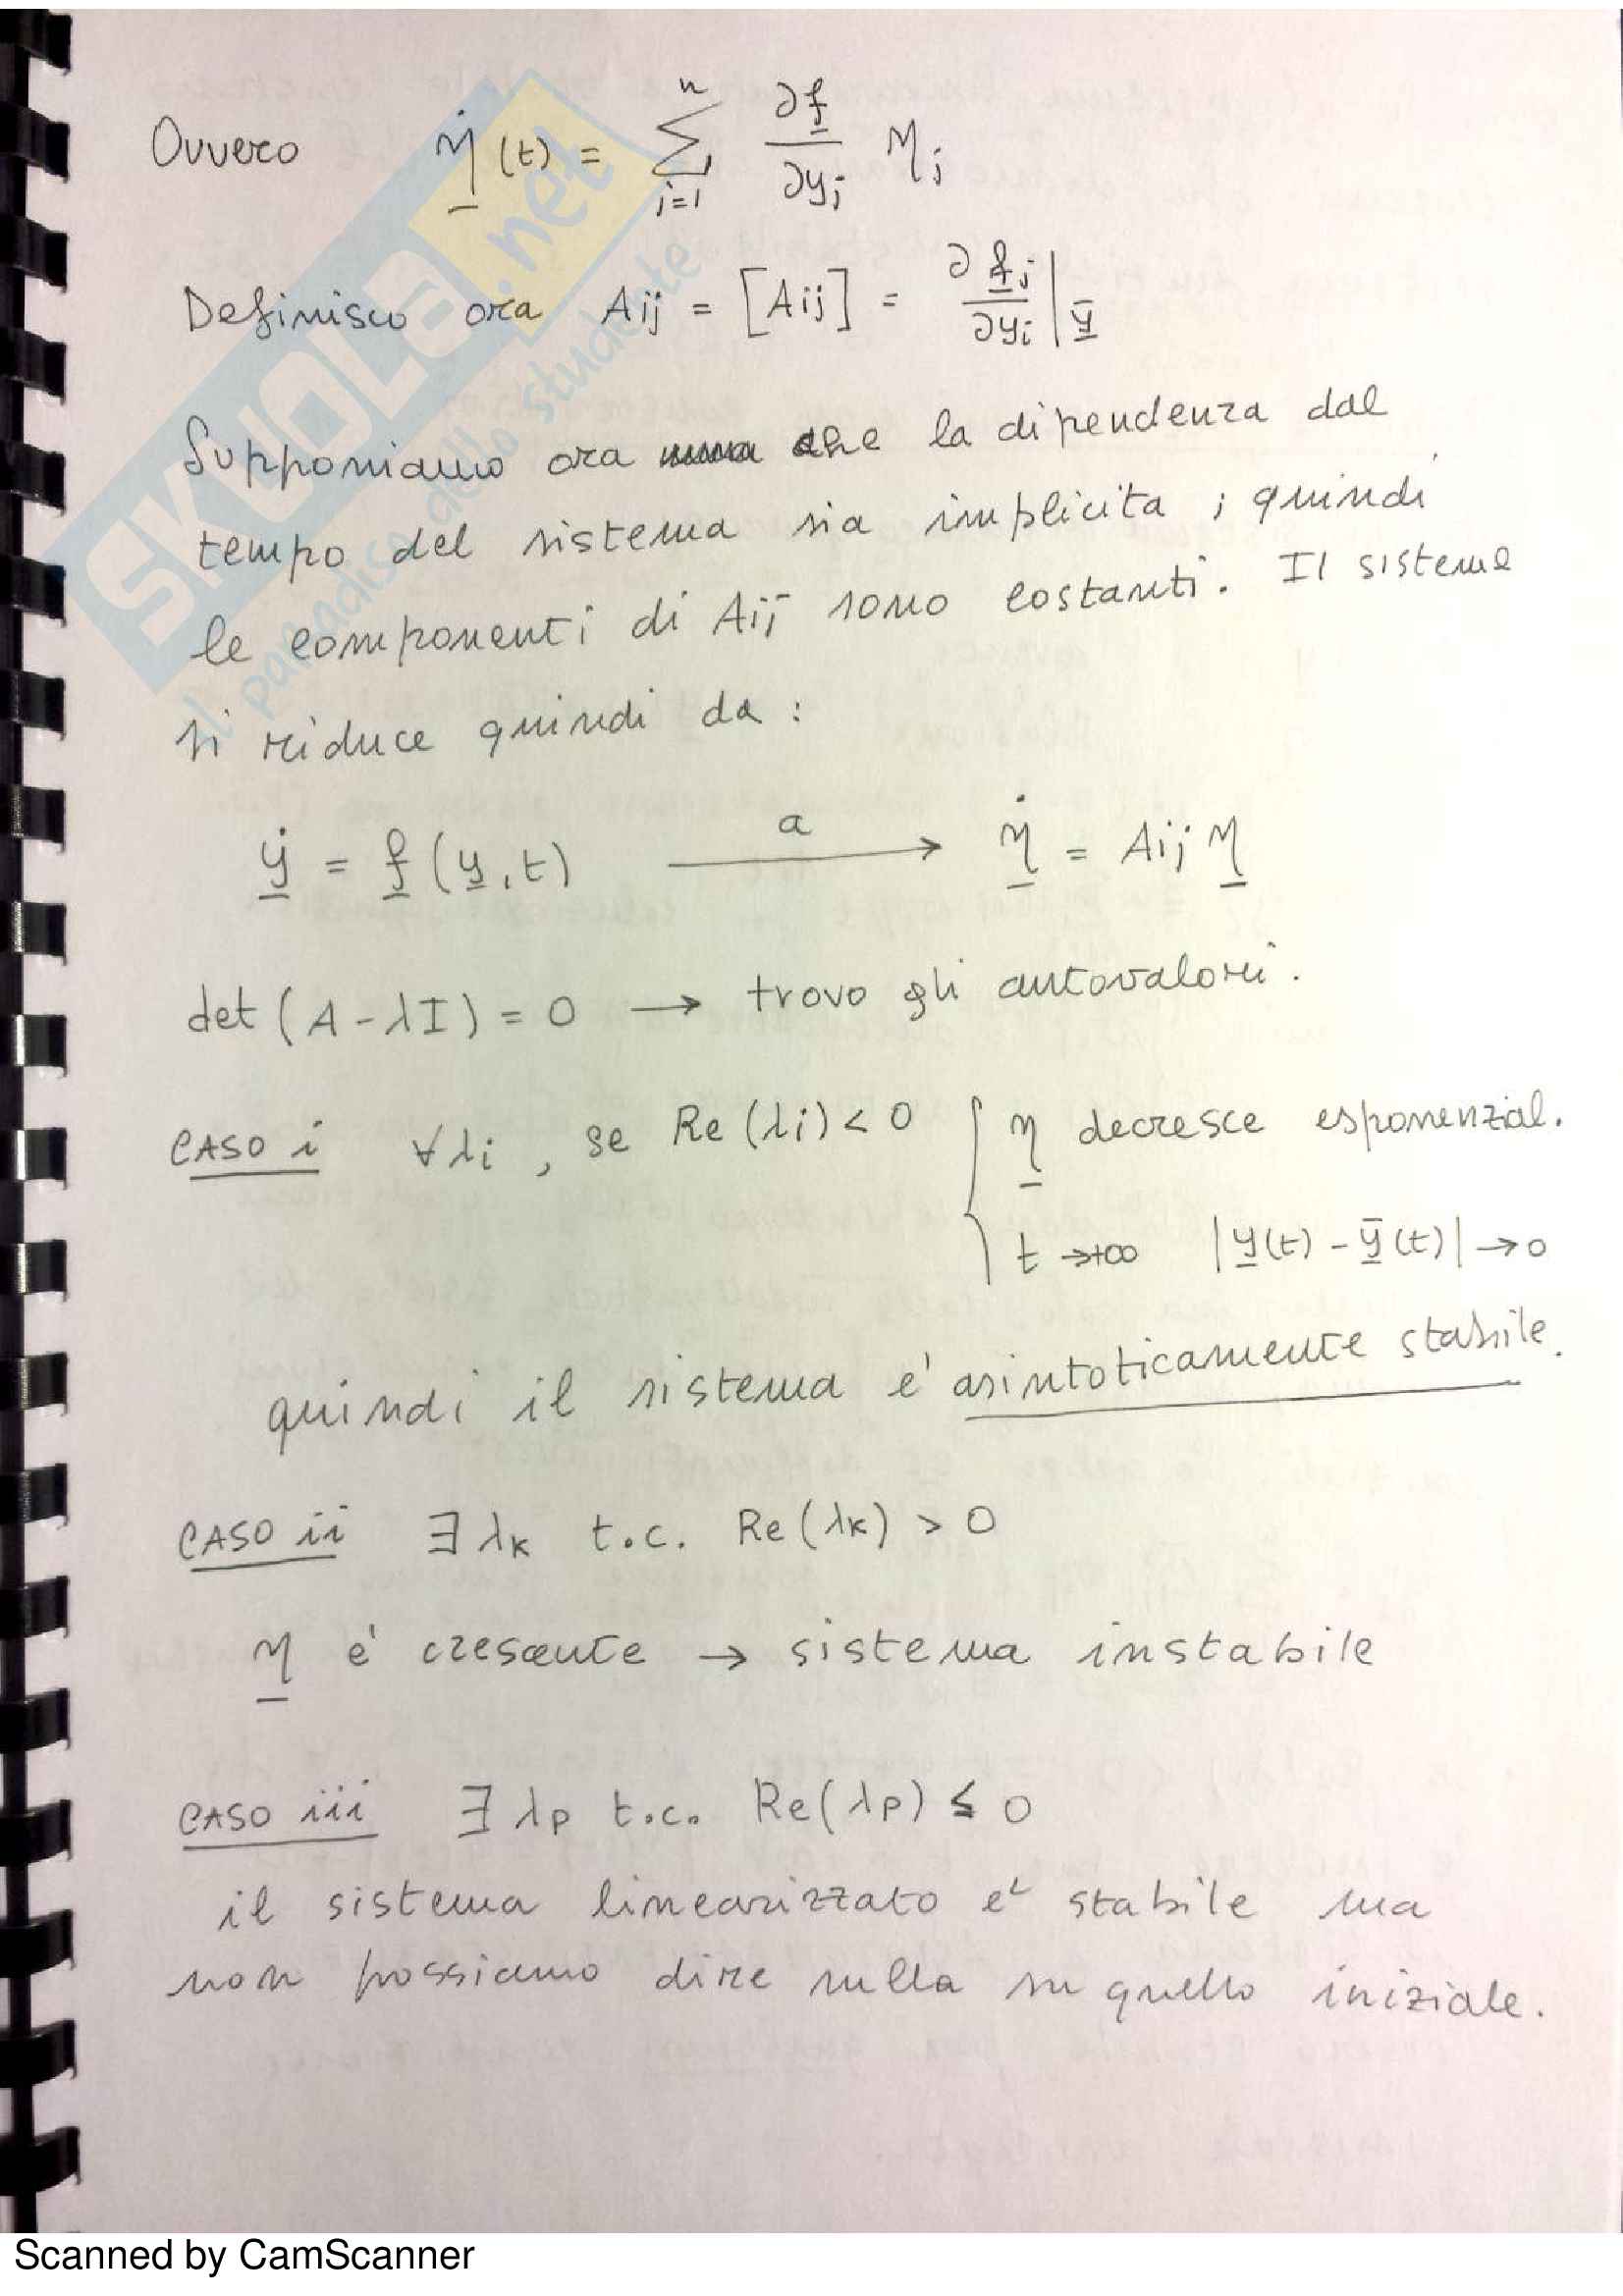 Ovvero η̇(t) = Σ_{j=1}^{n} ∂f/∂yj ηj
Definisco ora Aij = [Aij] = ∂fj/∂yi |ȳ
Supponiamo ora che la dipendenza dal
tempo del sistema sia implicita ; quindi
le componenti di Aij sono costanti. Il sistema
si riduce quindi da :
ẏ = f(y,t) —a→ η̇ = Aij η
det (A - λI) = 0 → trovo gli autovalori.
CASO i ∀λi , se Re(λi) < 0 { η decresce esponenzial.
t → +∞ |y(t) - ȳ(t)| → 0
quindi il sistema e' asintoticamente stabile.
CASO ii ∃ λk t.c. Re(λk) > 0
η e' crescente → sistema instabile
CASO iii ∃ λp t.c. Re(λp) ≤ 0
il sistema linearizzato e' stabile ma
non possiamo dire nulla su quello iniziale.
SKUOLA.net
il paradiso dello studente
Scanned by CamScanner